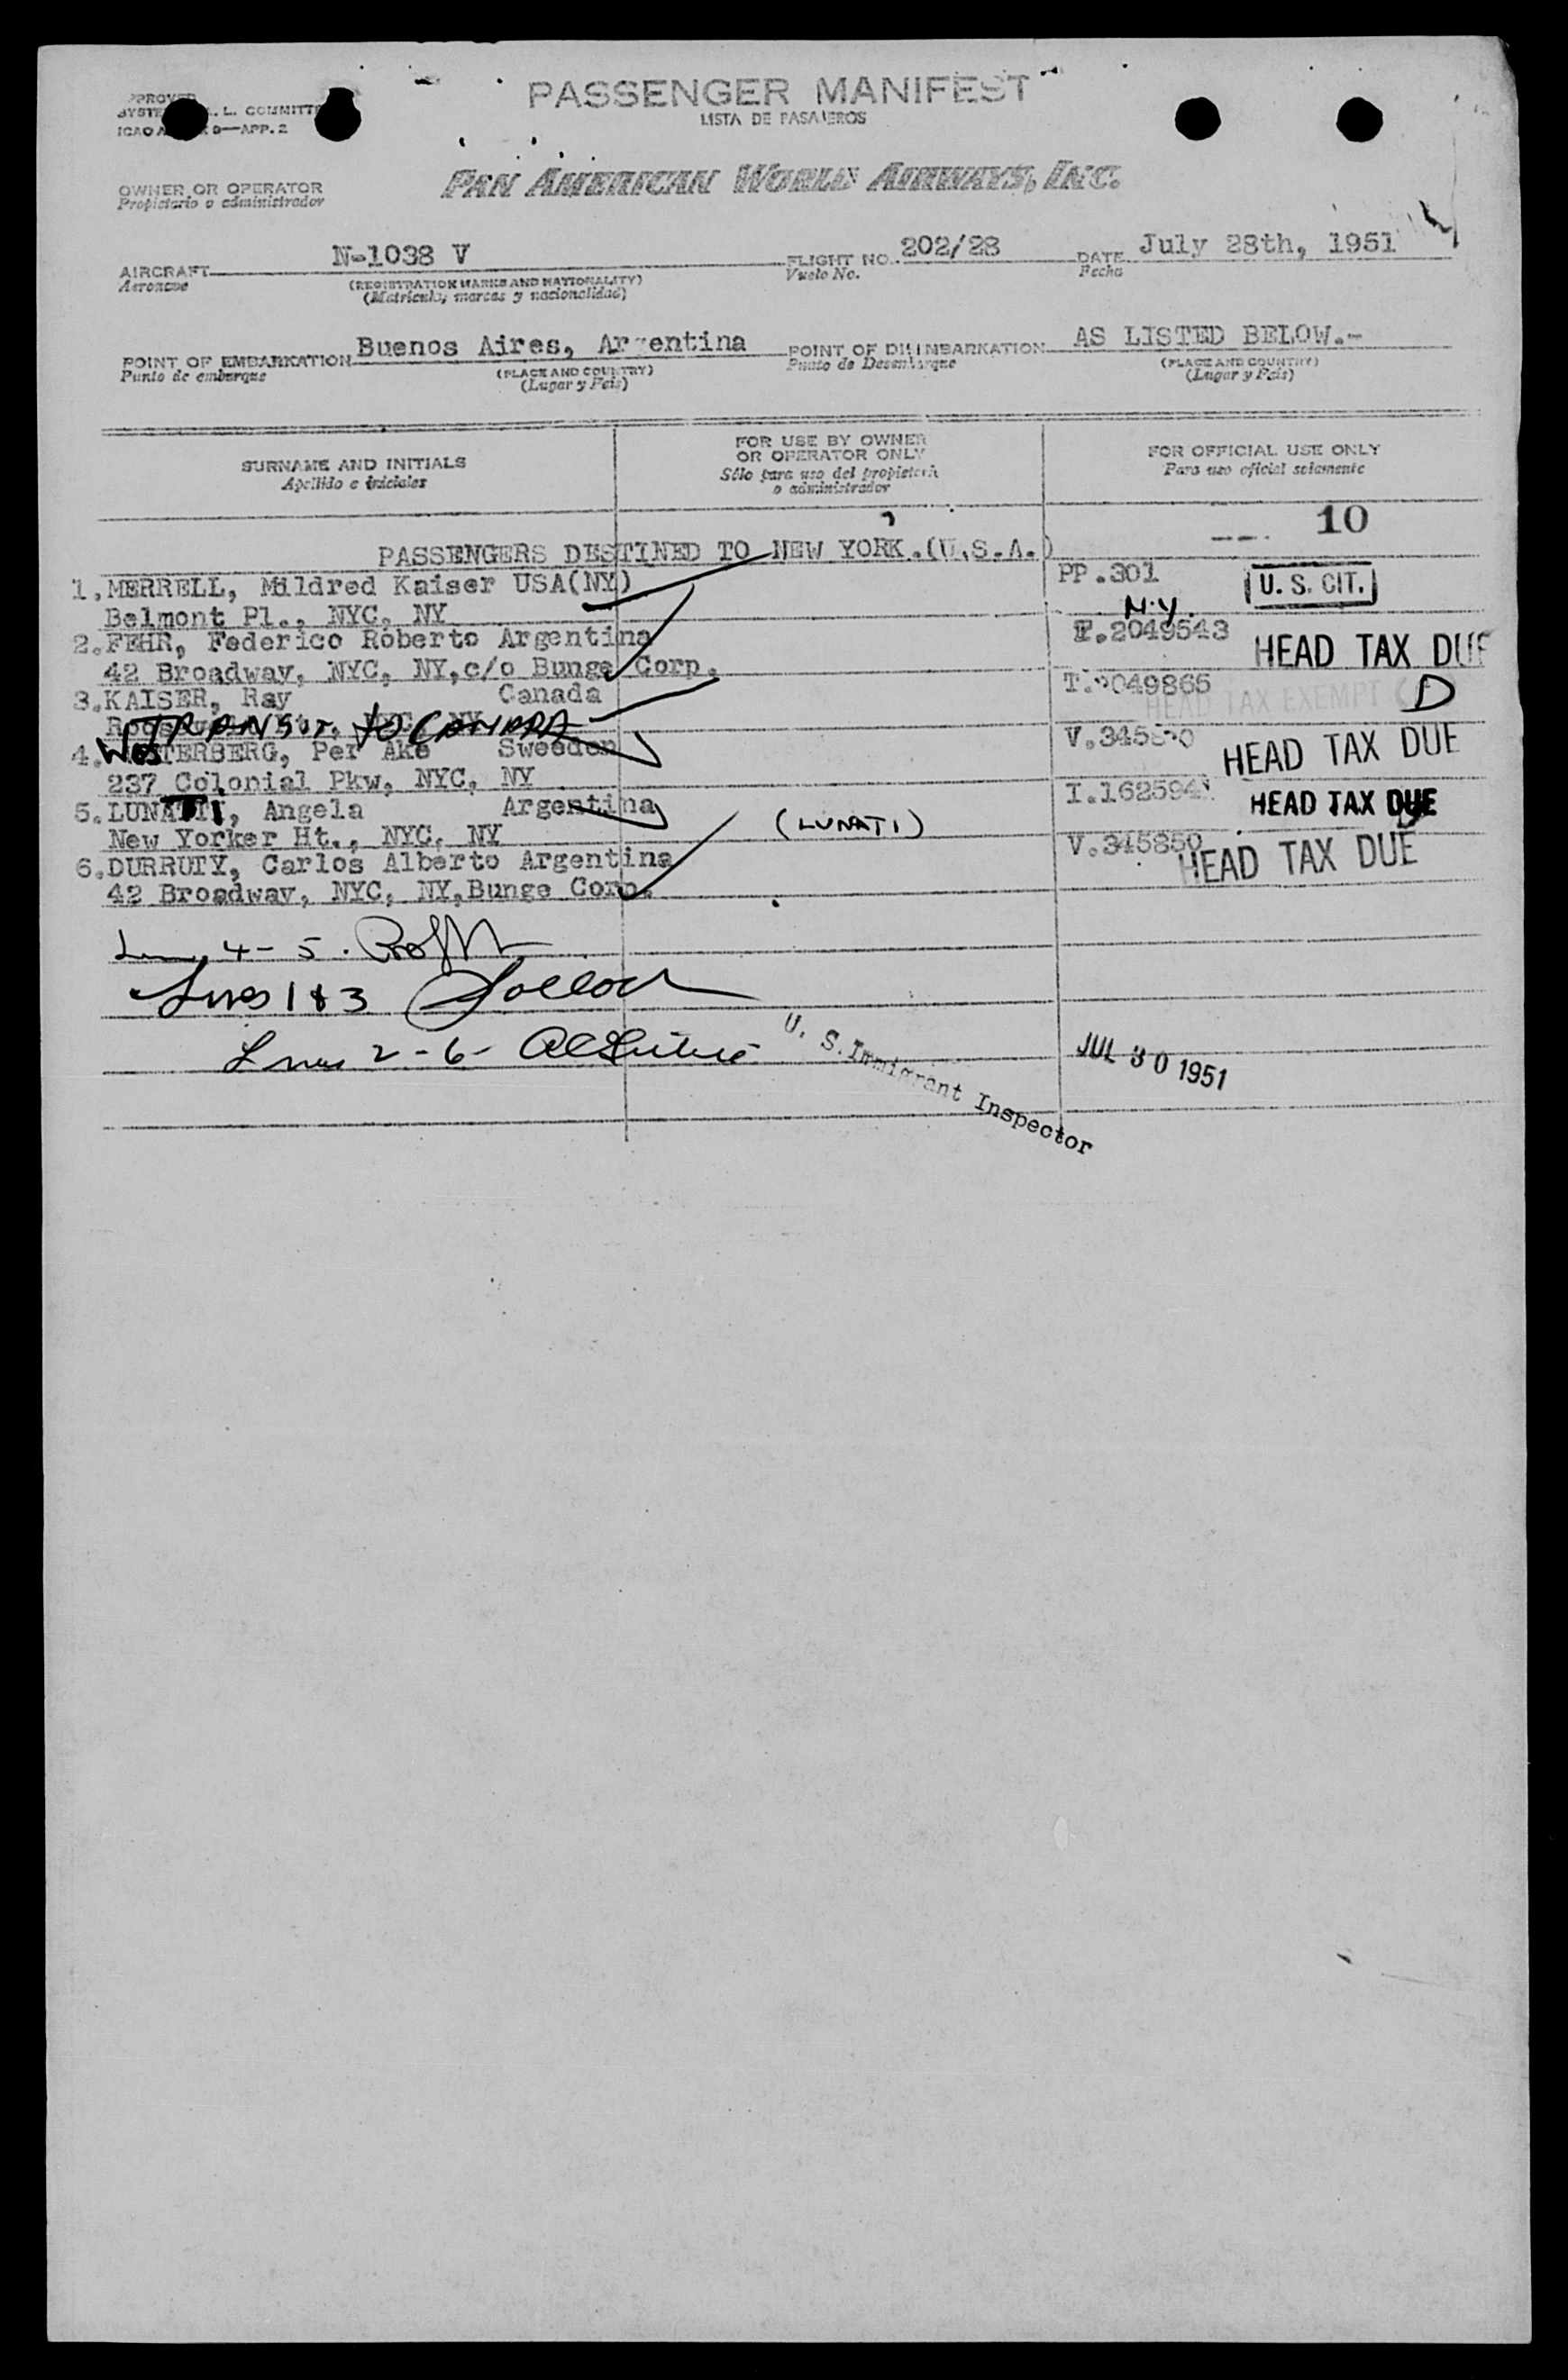 PASSENGER MANIFEST
LISTA DE PASAJEROS
ICAO
D—APP. 2
OWNER OR OPERATOR
Propietario o administrador
PAN AMERICAN WORLD AIRWAYS, INC.
AIRCRAFT N-1038 V FLIGHT NO. 202/28 DATE July 28th, 1951
Aeronave (REGISTRATION MARKS AND NATIONALITY) Vuelo No. Fecha
(Matrícula, marcas y nacionalidad)
POINT OF EMBARKATION Buenos Aires, Argentina POINT OF DISEMBARKATION AS LISTED BELOW.-
Punto de embarque (PLACE AND COUNTRY) Punto de Desembarque (PLACE AND COUNTRY)
(Lugar y País) (Lugar y País)
SURNAME AND INITIALS
Apellido e iniciales
FOR USE BY OWNER
OR OPERATOR ONLY
Sólo para uso del propietario
o administrador
FOR OFFICIAL USE ONLY
Para uso oficial solamente
10
PASSENGERS DESTINED TO NEW YORK.(U.S.A.)
1.MERRELL, Mildred Kaiser USA(NY) PP.301 U. S. CIT.
Belmont Pl., NYC, NY N.Y.
2.FEHR, Federico Roberto Argentina 2049543 HEAD TAX DUE
42 Broadway, NYC, NY,c/o Bunge Corp.
3.KAISER, Ray Canada T. 049865 HEAD TAX EXEMPT D
TRANSIT TO CANADA
4.WESTERBERG, Per Ake Sweeden V. HEAD TAX DUE
237 Colonial Pkw, NYC, NY
5.LUNATI, Angela Argentina I.162594 HEAD TAX DUE
New Yorker Ht., NYC, NY (LUNATI)
6.DURRUTY, Carlos Alberto Argentina V.345850 HEAD TAX DUE
42 Broadway, NYC, NY,Bunge Corp.
4 - 5.
Lines 1 & 3
Lines 2 - 6 -
U. S. Immigrant Inspector
JUL 30 1951